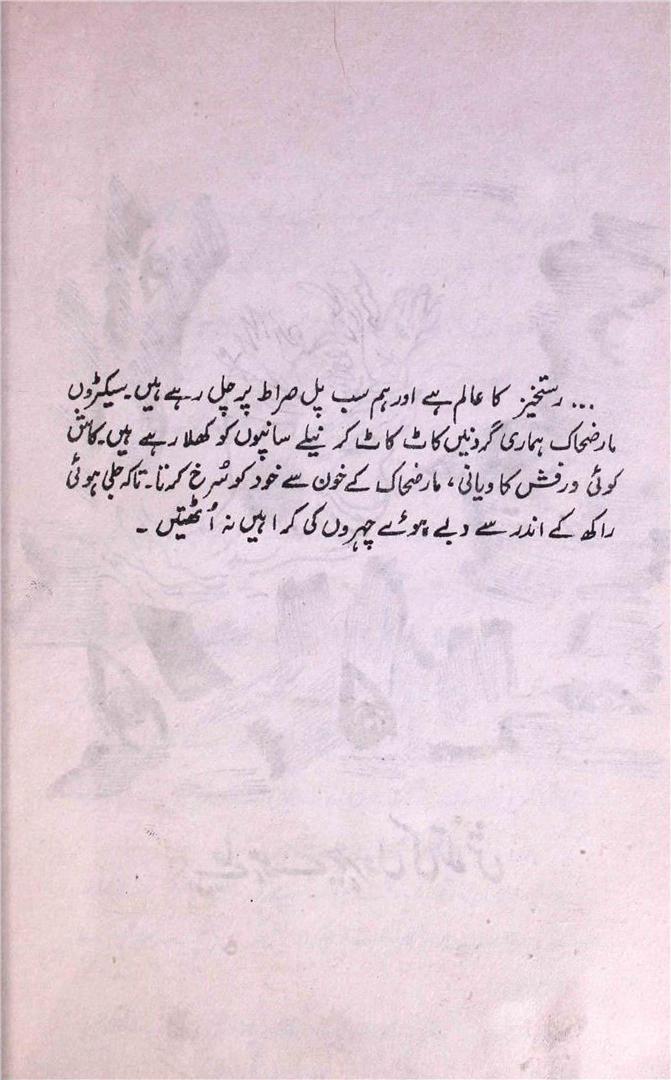 ... رستخیز کا عالم ہے اور ہم سب پل صراط پر چل رہے ہیں۔ سیکڑوں
مارضحاک ہماری گردنیں کاٹ کاٹ کر نیلے سانپوں کو کھلا رہے ہیں۔ کاش
کوئی ورفش کاویانی، مارضحاک کے خون سے خود کو سُرخ کرتا۔ تاکہ جلی ہوئی
راکھ کے اندر سے دبے ہوئے چہروں کی کراہیں نہ اُٹھتیں ۔